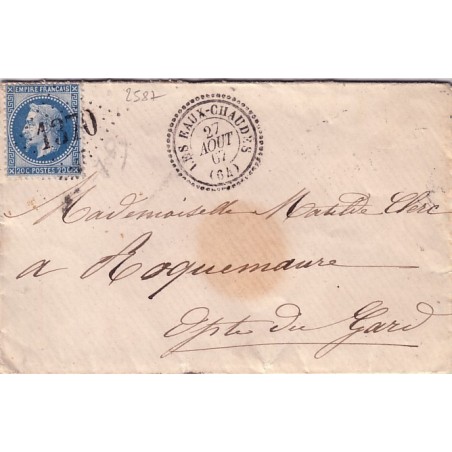 EMPIRE FRANÇAIS
1370
20C POSTES 20C
2587
LES EAUX-CHAUDES
27
AOUT
67
(64)
Mademoiselle Matilde Clerc
a Roquemaure
Dpte du Gard